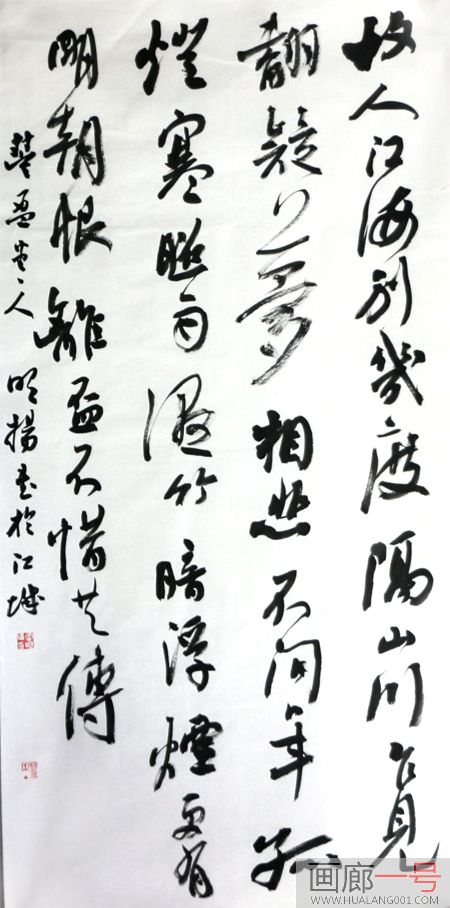 故人江海別幾度隔山川乍見
翻疑夢相悲不问年孤
燈寒照雨濕竹暗浮煙更有
明朝恨離盃不惜共傳
盈堂人明揚書於江城
画廊一号
WWW.HUALANG001.COM